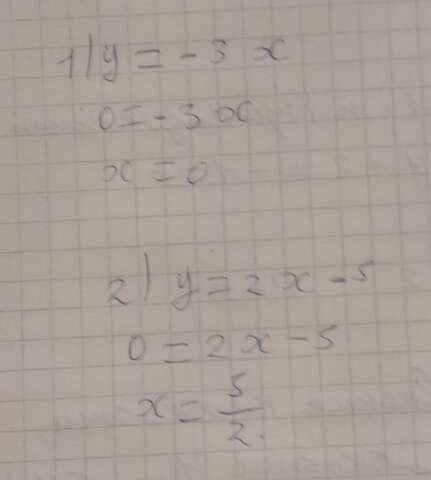 1) y = -3 x
0 = -3 x
x = 0
2) y = 2 x - 5
0 = 2 x - 5
x = 5/2.